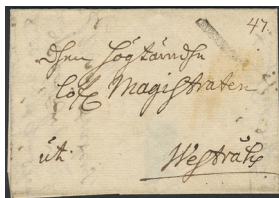 47.
Dhen Högtärade
Lofl Magistraten
ut.
Westeråhs